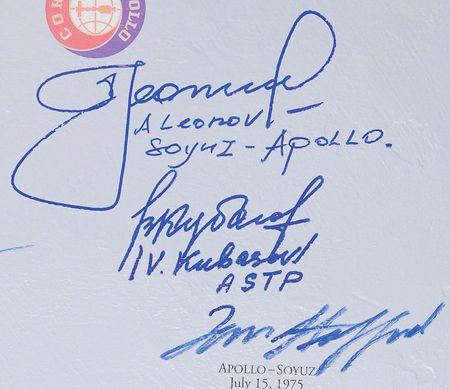 A Leonov
SOYUZ – APOLLO.
ВКубасов
/V. Kubasov/
ASTP
Tom Stafford
APOLLO – SOYUZ
July 15, 1975